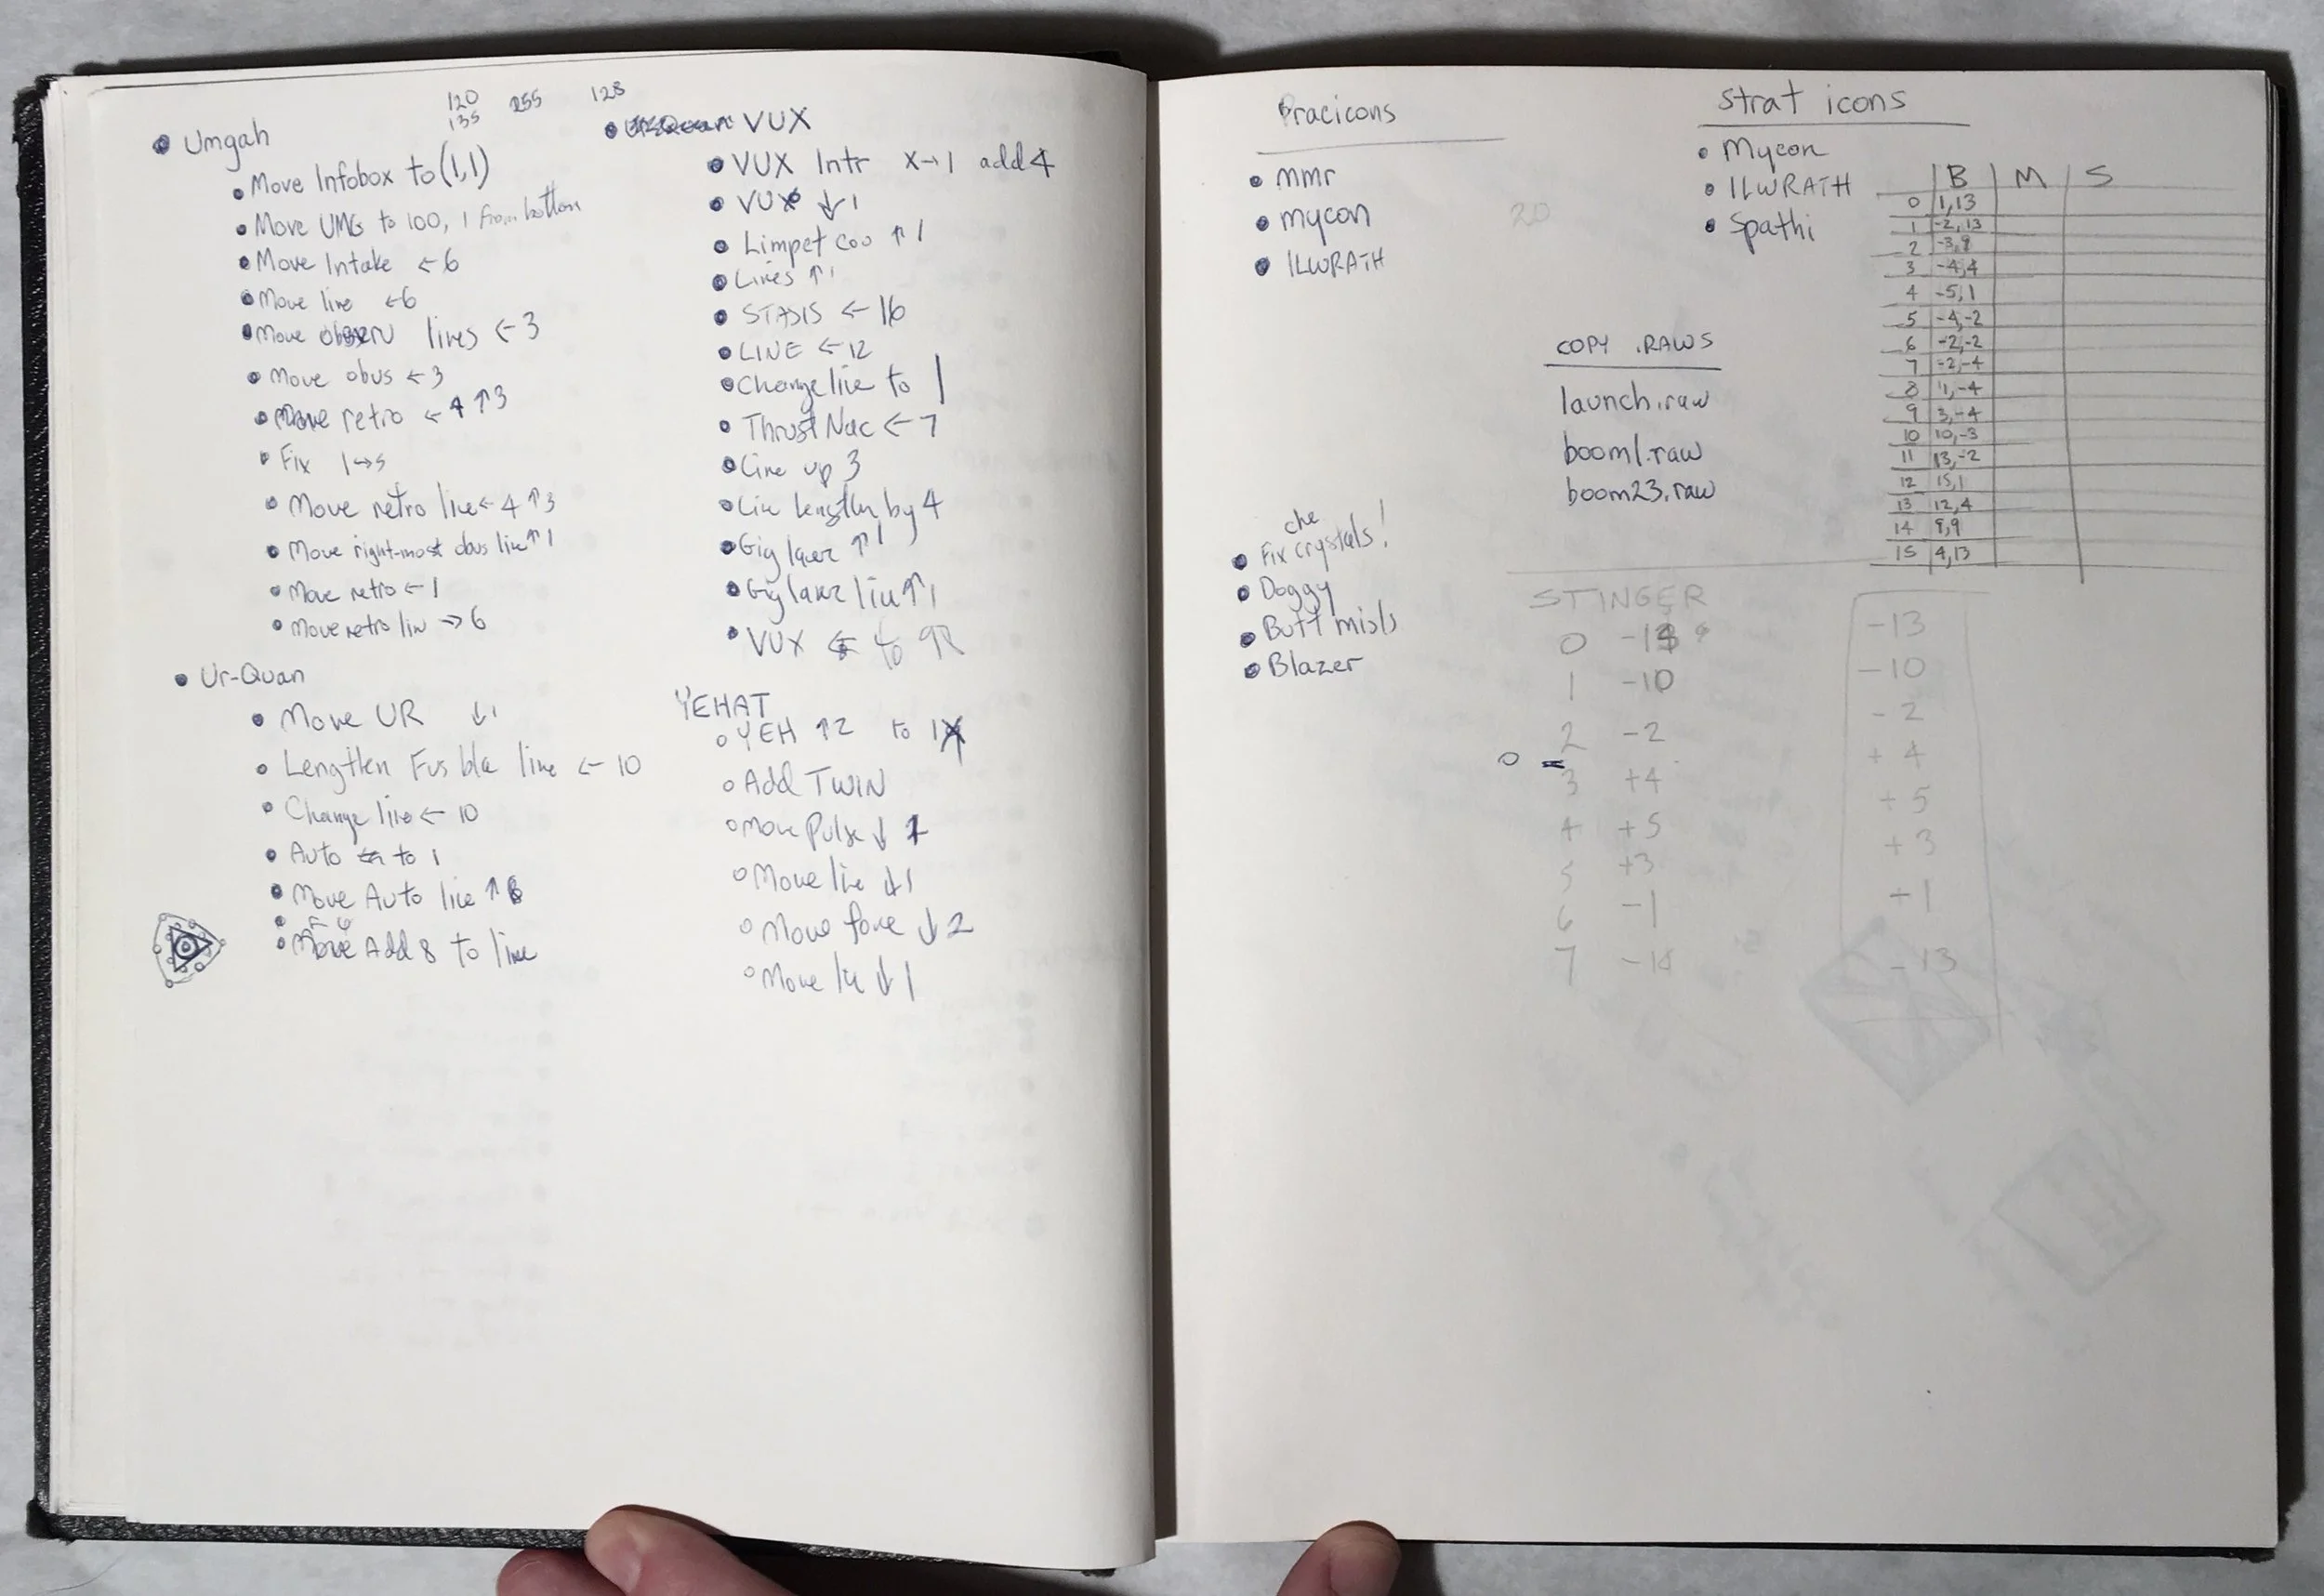 120 255 128
135
• Umgah
• Move Infobox to (1,1)
• Move UMG to 100, 1 from bottom
• Move Intake ← 6
• Move line ← 6
• Move lines ← 3
• Move obus ← 3
• Move retro ← 4 ↑ 3
• Fix
• Move retro line ← 4 ↑ 3
• Move right-most obus line ↑ 1
• Move retro ← 1
• Move retro lin → 6
• Ur-Quan
• Move UR ↓ 1
• Lengthen Fus bla line ← 10
• Change line ← 10
• Auto to 1
• Move Auto line ↑
• Add 8 to line
• VUX
• VUX Intr X→1 add 4
• VUX ↓ 1
• Limpet Coo ↑ 1
• Lines ↑ 1
• STASIS ← 16
• LINE ← 12
• Change line to |
• Thrust Nac ← 7
• Line up 3
• Line lengthen by 4
• Gig laser ↑ 1
• Gig laser lin ↑ 1
• VUX to
YEHAT
• YEH ↑ 2 to
• Add TWIN
• Move Pulse ↓ 1
• Move line ↓ 1
• Move force ↓ 2
• Move ↓ 1
Pracicons
• mmr
• mycon
• ILWRATH
che
• Fix crystals!
• Doggy
• Butt misls
• Blazer
20
COPY .RAWS
launch.raw
boom1.raw
boom23.raw
Strat icons
• Mycon
• ILWRATH
• Spathi
B M S
0 1,13
1 -2,13
2 -3,9
3 -4,4
4 -5,1
5 -4,-2
6 -2,-2
7 -2,-4
8 1,-4
9 3,-4
10 10,-3
11 13,-2
12 15,1
13 12,4
14 8,9
15 4,13
STINGER
0 -13 -13
1 -10 -10
2 -2 -2
3 +4 +4
4 +5 +5
5 +3 +3
6 -1 +1
7 -13